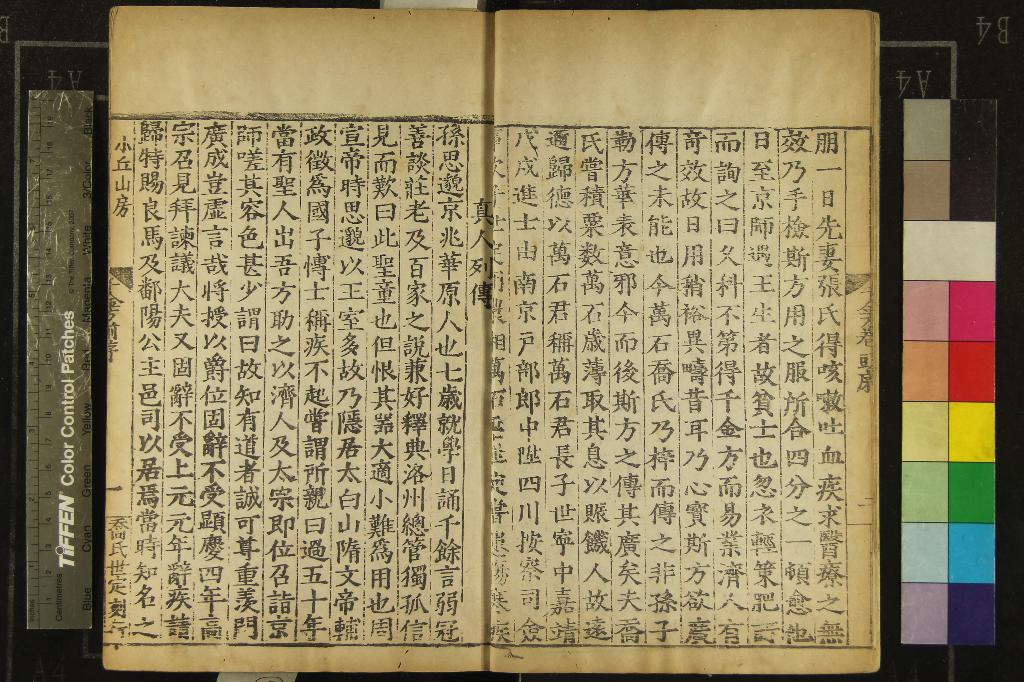 朋一日先妻張氏得咳嗽吐血疾求醫療之無
效乃手檢斯方用之服所合四分之一頓愈他
日至京師遇王生者故貧士也忽衣輕策肥訝
而詢之曰久科不第得千金方而易業濟人有
奇效故日用稍裕異疇昔耳乃心寶斯方欲廣
傳之未能也今萬石喬氏乃梓而傳之非孫子
勒方華表意邪今而後斯方之傳其廣矣夫喬
氏嘗積粟数萬石歲薄取其息以賑饑人故遠
邇歸德以萬石君稱萬石君長子世寧中嘉靖
戊戌進士由南京戶部郎中陞四川按察司僉
真人列傳
孫思邈京兆華原人也七歲就學日誦千餘言弱冠
善談莊老及百家之說兼好釋典洛州總管獨孤信
見而歎曰此聖童也但恨其器大適小難爲用也周
宣帝時思邈以王室多故乃隱居太白山隋文帝輔
政徵爲國子博士稱疾不起嘗謂所親曰過五十年
當有聖人出吾方助之以濟人及太宗即位召詣京
師嗟其容色甚少謂曰故知有道者誠可尊重羨門
廣成豈虛言哉將授以爵位固辭不受顯慶四年高
宗召見拜諫議大夫又固辭不受上元元年辭疾請
歸特賜良馬及鄱陽公主邑司以居焉當時知名之
小丘山房
一
喬氏世定刻行
TIFFEN Color Control Patches
Blue
Cyan
Green
Yellow
Red
Magenta
White
3/Color
Black
Centimetres
Inches
A4
A4
B4
B